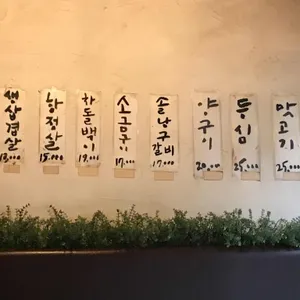 생삼겹살
13.000
항정살
15.000
차돌백이
19.000
소금구이
17.000
솔낙구갈비
17.000
양구이
20.000
등심
25.000
맛고기
25.000